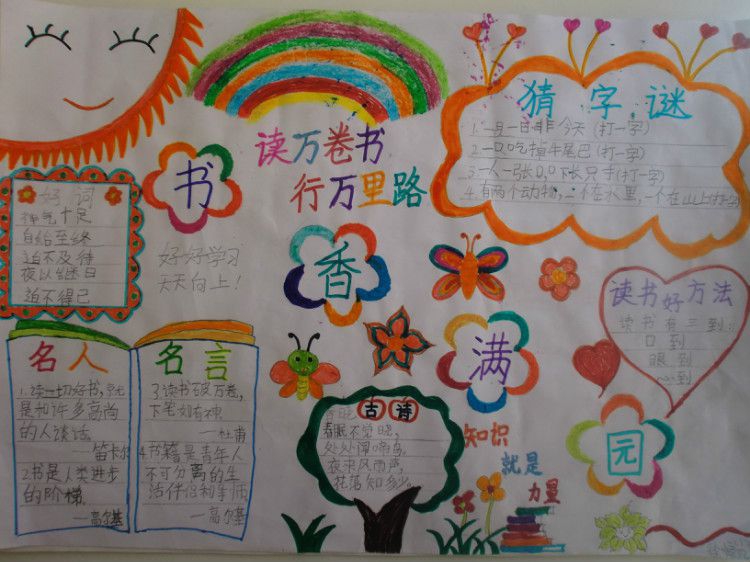 读万卷书
行万里路
猜字谜
1.一旦一日非今天(打一字)
2.一口吃掉牛尾巴(打一字)
3.一人一张口,口下长只手(打一字)
4.有两个动物,一个在水里,一个在山上(打一字)
书
香
满
园
好词
神气十足
自始至终
迫不及待
夜以继日
迫不得已
好好学习
天天向上!
名人
1.读一切好书,就
是和许多高尚
的人谈话。
—笛卡尔
2.书是人类进步
的阶梯。
—高尔基
名言
3.读书破万卷,
下笔如有神
—杜甫
4.书籍是青年人
不可分离的生
活伴侣和导师
—高尔基
古诗
春晓
春眠不觉晓,
处处闻啼鸟。
夜来风雨声,
花落知多少。
读书好方法
读书有三到:
口到
眼到
心到
知识
就是
力量